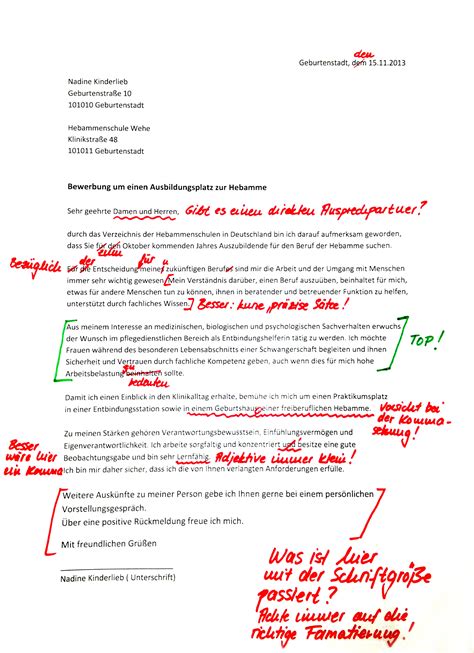 den
Geburtenstadt, dem 15.11.2013
Nadine Kinderlieb
Geburtenstraße 10
101010 Geburtenstadt
Hebammenschule Wehe
Klinikstraße 48
101011 Geburtenstadt
Bewerbung um einen Ausbildungsplatz zur Hebamme
Sehr geehrte Damen und Herren, Gibt es einen direkten Ansprechpartner?
durch das Verzeichnis der Hebammenschulen in Deutschland bin ich darauf aufmerksam geworden,
dass Sie für den Oktober kommenden Jahres Auszubildende für den Beruf der Hebamme suchen.
Bezüglich der für
Für die Entscheidung meines zukünftigen Berufes sind mir die Arbeit und der Umgang mit Menschen
immer sehr wichtig gewesen. Mein Verständnis darüber, einen Beruf auszuüben, beinhaltet für mich,
etwas für andere Menschen tun zu können, ihnen in beratender und betreuender Funktion zu helfen,
unterstützt durch fachliches Wissen. Besser: kurze, präzise Sätze!
Aus meinem Interesse an medizinischen, biologischen und psychologischen Sachverhalten erwuchs
der Wunsch im pflegedienstlichen Bereich als Entbindungshelferin tätig zu werden. Ich möchte
Frauen während des besonderen Lebensabschnitts einer Schwangerschaft begleiten und ihnen
Sicherheit und Vertrauen durch fachliche Kompetenz geben, auch wenn dies für mich hohe
Arbeitsbelastung beinhalten sollte.
TOP!
bedeuten
Damit ich einen Einblick in den Klinikalltag erhalte, bemühe ich mich um einen Praktikumsplatz
in einer Entbindungsstation sowie in einem Geburtshaus einer freiberuflichen Hebamme.
Vorsicht bei
der Komma-
setzung!
Zu meinen Stärken gehören Verantwortungsbewusstsein, Einfühlungsvermögen und
Eigenverantwortlichkeit. Ich arbeite sorgfältig und konzentriert und besitze eine gute
Beobachtungsgabe und bin sehr Lernfähig. Adjektive immer klein!
Ich bin mir daher sicher, dass ich die von Ihnen verlangten Anforderungen erfülle.
Besser
wäre hier
ein Komma
Weitere Auskünfte zu meiner Person gebe ich Ihnen gerne bei einem persönlichen
Vorstellungsgespräch.
Über eine positive Rückmeldung freue ich mich.
Mit freundlichen Grüßen
Nadine Kinderlieb ( Unterschrift)
Was ist hier
mit der Schriftgröße
passiert?
Achte immer auf die
richtige Formatierung!